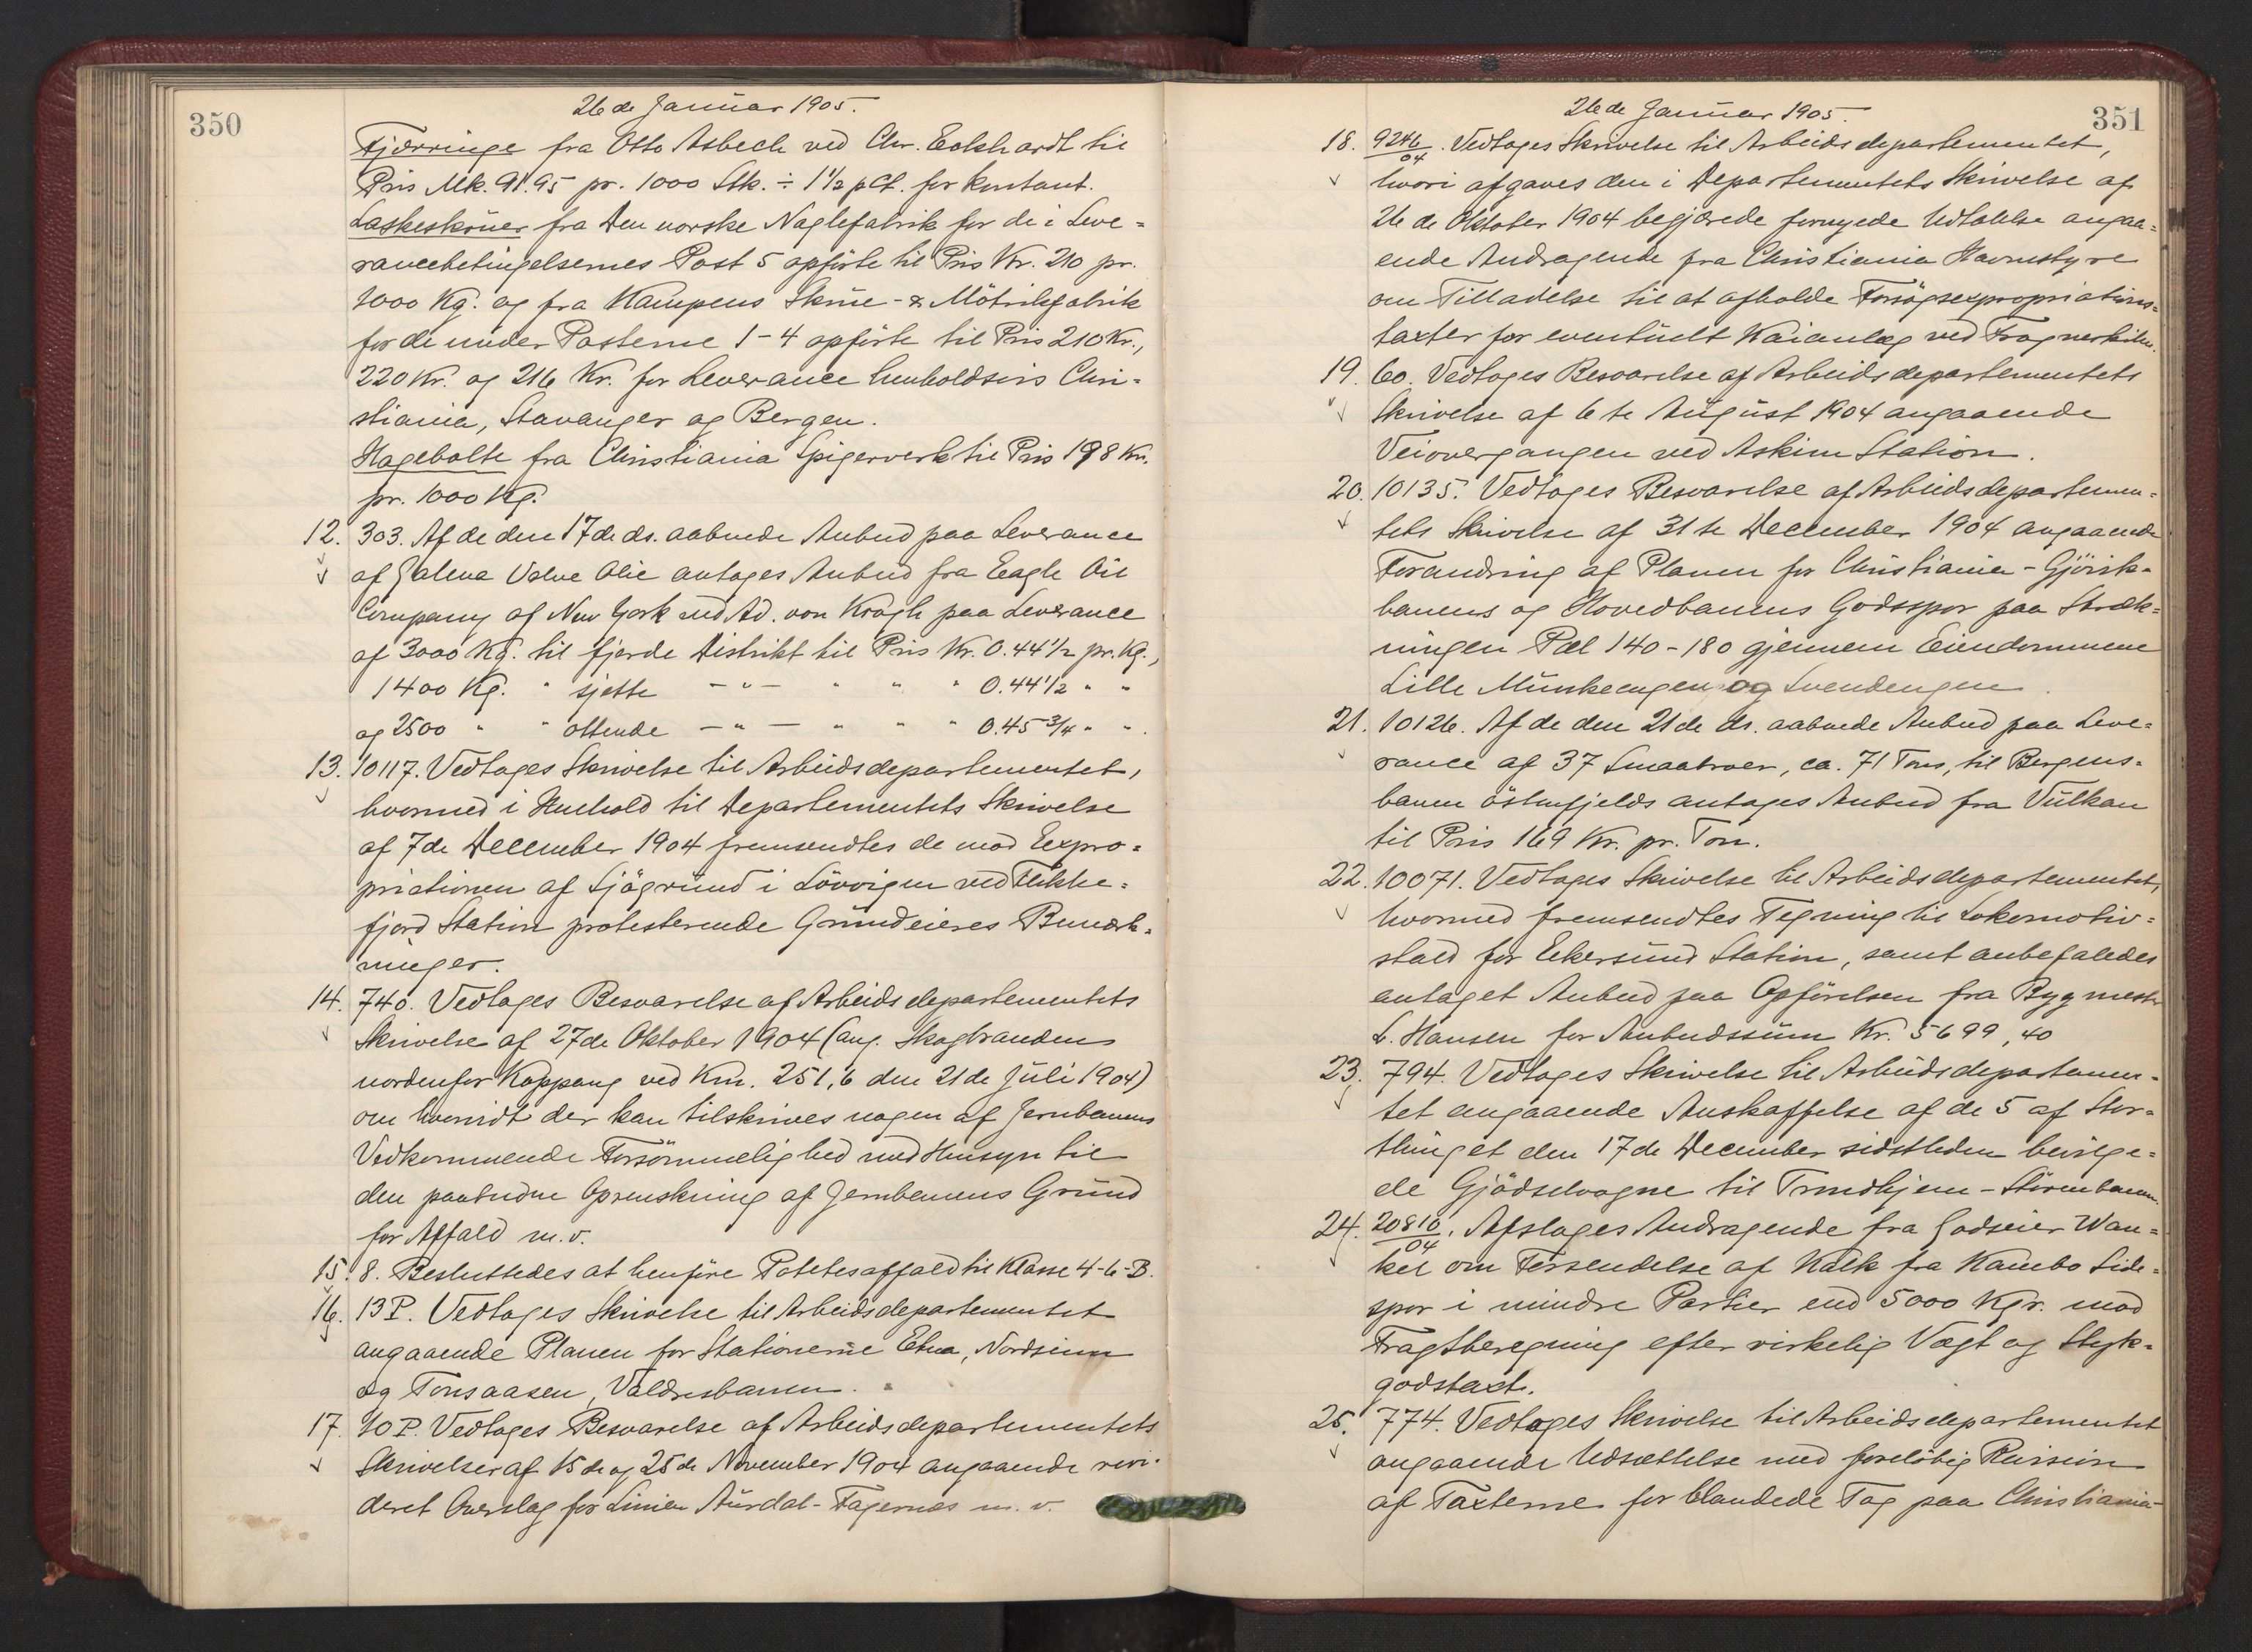 350
26de Januar 1905.
Fjærringe fra Otto Asbech ved Chr. Eckhardt til
Pris Mk. 91.95 pr. 1000 Stk. ÷ 1½ pCt. for kontant.
Laskeskruer fra Den norske Naglefabrik for de i Leve=
rancebetingelsernes Post 5 opførte til Pris Kr. 210 pr.
1000 Kg. og fra Kampens Skrue- & Møtrikfabrik
for de under Posterne 1-4 opførte til Pris 210 Kr.,
220 Kr. og 216 Kr. for Leverance henholdsvis Chri=
stiania, Stavanger og Bergen.
Hagebolte fra Christiania Spigerverk til Pris 198 Kr.
pr. 1000 Kg.
12. 303. Af de den 17de ds. aabnede Anbud paa Leverance
af Galena Valve Olie antages Anbud fra Eagle Oil
Company of New York ved Ad. von Krogh paa Leverance
af 3000 Kg. til fjerde Distrikt til Pris Kr. 0.44½ pr. Kg.,
1400 Kg. " sjette — " — " " " 0.44½ " "
og 2500 " " ottende — " — " " " 0.45¾ " ".
13. 10117. Vedtages Skrivelse til Arbeidsdepartementet,
hvormed i Henhold til Departementets Skrivelse
af 7de December 1904 fremsendtes de mod Expro=
priationen af Sjøgrund i Lövvigen ved Flikke=
fjord Station protesterende Grundeieres Bemærk=
ninger.
14. 740. Vedtages Besvarelse af Arbeidsdepartementets
Skrivelse af 27de Oktober 1904 (ang. Skogbranden
nordenfor Koppang ved Km. 251,6 den 21de Juli 1904)
om hvorvidt der kan tilskrives nogen af Jernbanens
Vedkommende Forsømmelighed med Hensyn til
den paabudne Oprenskning af Jernbanens Grund
for Affald m.v.
15. 8. Besluttedes at henføre Potetesaffald til Klasse 4-6-B.
16. 13 P. Vedtages Skrivelse til Arbeidsdepartementet
angaaende Planen for Stationerne Etna, Nordsinn
og Tonsaasen, Valdresbanen.
17. 10 P. Vedtages Besvarelse af Arbeidsdepartementets
Skrivelser af 15de og 25de November 1904 angaaende revi=
deret Overslag for Linien Aurdal-Fagernæs m.v.
351
26de Januar 1905.
18. 9246/04. Vedtages Skrivelse til Arbeidsdepartementet,
hvori afgaves den i Departementets Skrivelse af
26de Oktober 1904 begjærede fornyede Udtalelse angaa=
ende Andragende fra Christiania Havnestyre
om Tilladelse til at afholde Forsøgsexpropriations=
taxter for eventuelt Kaianlæg ved Frognerkilen.
19. 60. Vedtages Besvarelse af Arbeidsdepartementets
Skrivelse af 6te August 1904 angaaende
Veiovergangen ved Askim Station.
20. 10135. Vedtages Besvarelse af Arbeidsdepartemen=
tets Skrivelse af 31te December 1904 angaaende
Forandring af Planen for Christiania-Gjøvik=
banens og Hovedbanens Godsspor paa Stræk=
ningen Pæl 140-180 gjennem Eiendommene
Lille Munkeengen og Svendengen.
21. 10126. Af de den 21de ds. aabnede Anbud paa Leve=
rance af 37 Smaabroer, ca. 71 Tons, til Bergens=
banen østenfjelds antages Anbud fra Vulkan
til Pris 169 Kr. pr. Ton.
22. 10071. Vedtages Skrivelse til Arbeidsdepartementet,
hvormed fremsendtes Tegning til Lokomotiv=
stald for Ekersund Station, samt anbefaledes
antaget Anbud paa Opførelsen fra Bygmester
L. Hansen for Anbudssum Kr. 5699,40
23. 794. Vedtages Skrivelse til Arbeidsdepartemen=
tet angaaende Anskaffelse af de 5 af Stor=
thinget den 17de December sidstleden bevilge=
de Gjødselvogne til Trondhjem-Størenbanen.
24. 20816/04. Afslages Andragende fra Godseier Wan=
kel om Forsendelse af Kalk fra Kambo Side=
spor i mindre Partier end 5000 Kgr. mod
Fragtberegning efter virkelig Vægt og Styk=
godstaxt.
25. 774. Vedtages Skrivelse til Arbeidsdepartementet
angaaende Udsættelse med foreløbig Revision
af Taxterne for blandede Tog paa Christiania-